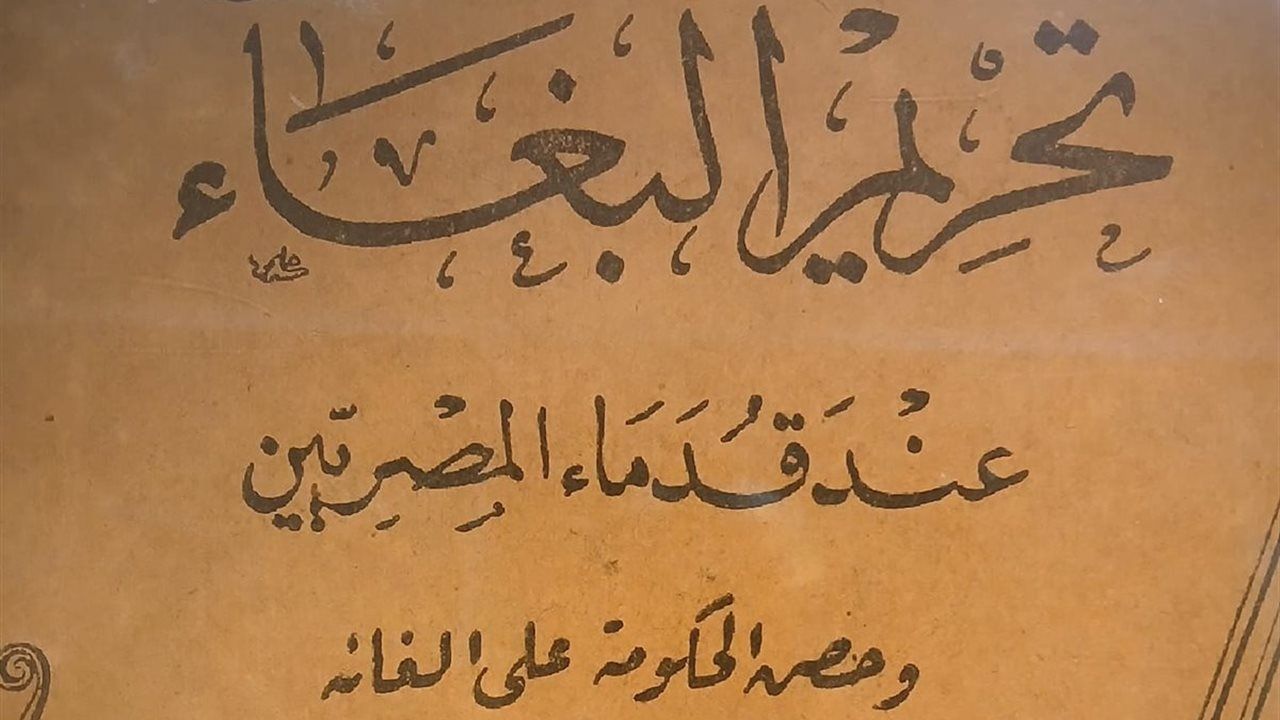 تحرِيْم البغاء
عنْدَ قُدَمَاء المِصْرِيّين
وحض الحكومة على الغائه